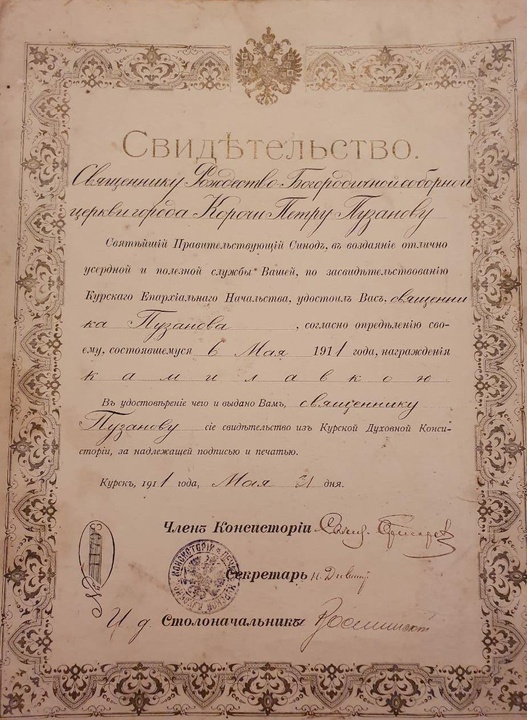 Свидѣтельство.
Священнику Рождество-Богородичной соборной
церкви города Корочи Петру Пузанову
Святѣйшій Правительствующій Синодъ, въ воздаяніе отлично
усердной и полезной службы Вашей, по засвидѣтельствованію
Курскаго Епархіальнаго Начальства, удостоилъ Васъ, священни
ка Пузанова, согласно опредѣленію сво-
ему, состоявшемуся 6 Мая 1911 года, награжденія
камилавкою
Въ удостовѣреніе чего и выдано Вамъ, священнику
Пузанову сіе свидѣтельство изъ Курской Духовной Конси-
сторіи, за надлежащей подписью и печатью.
Курскъ, 1911 года, Мая 31 дня.
Членъ Консисторіи
Секретарь
И д Столоначальника
№